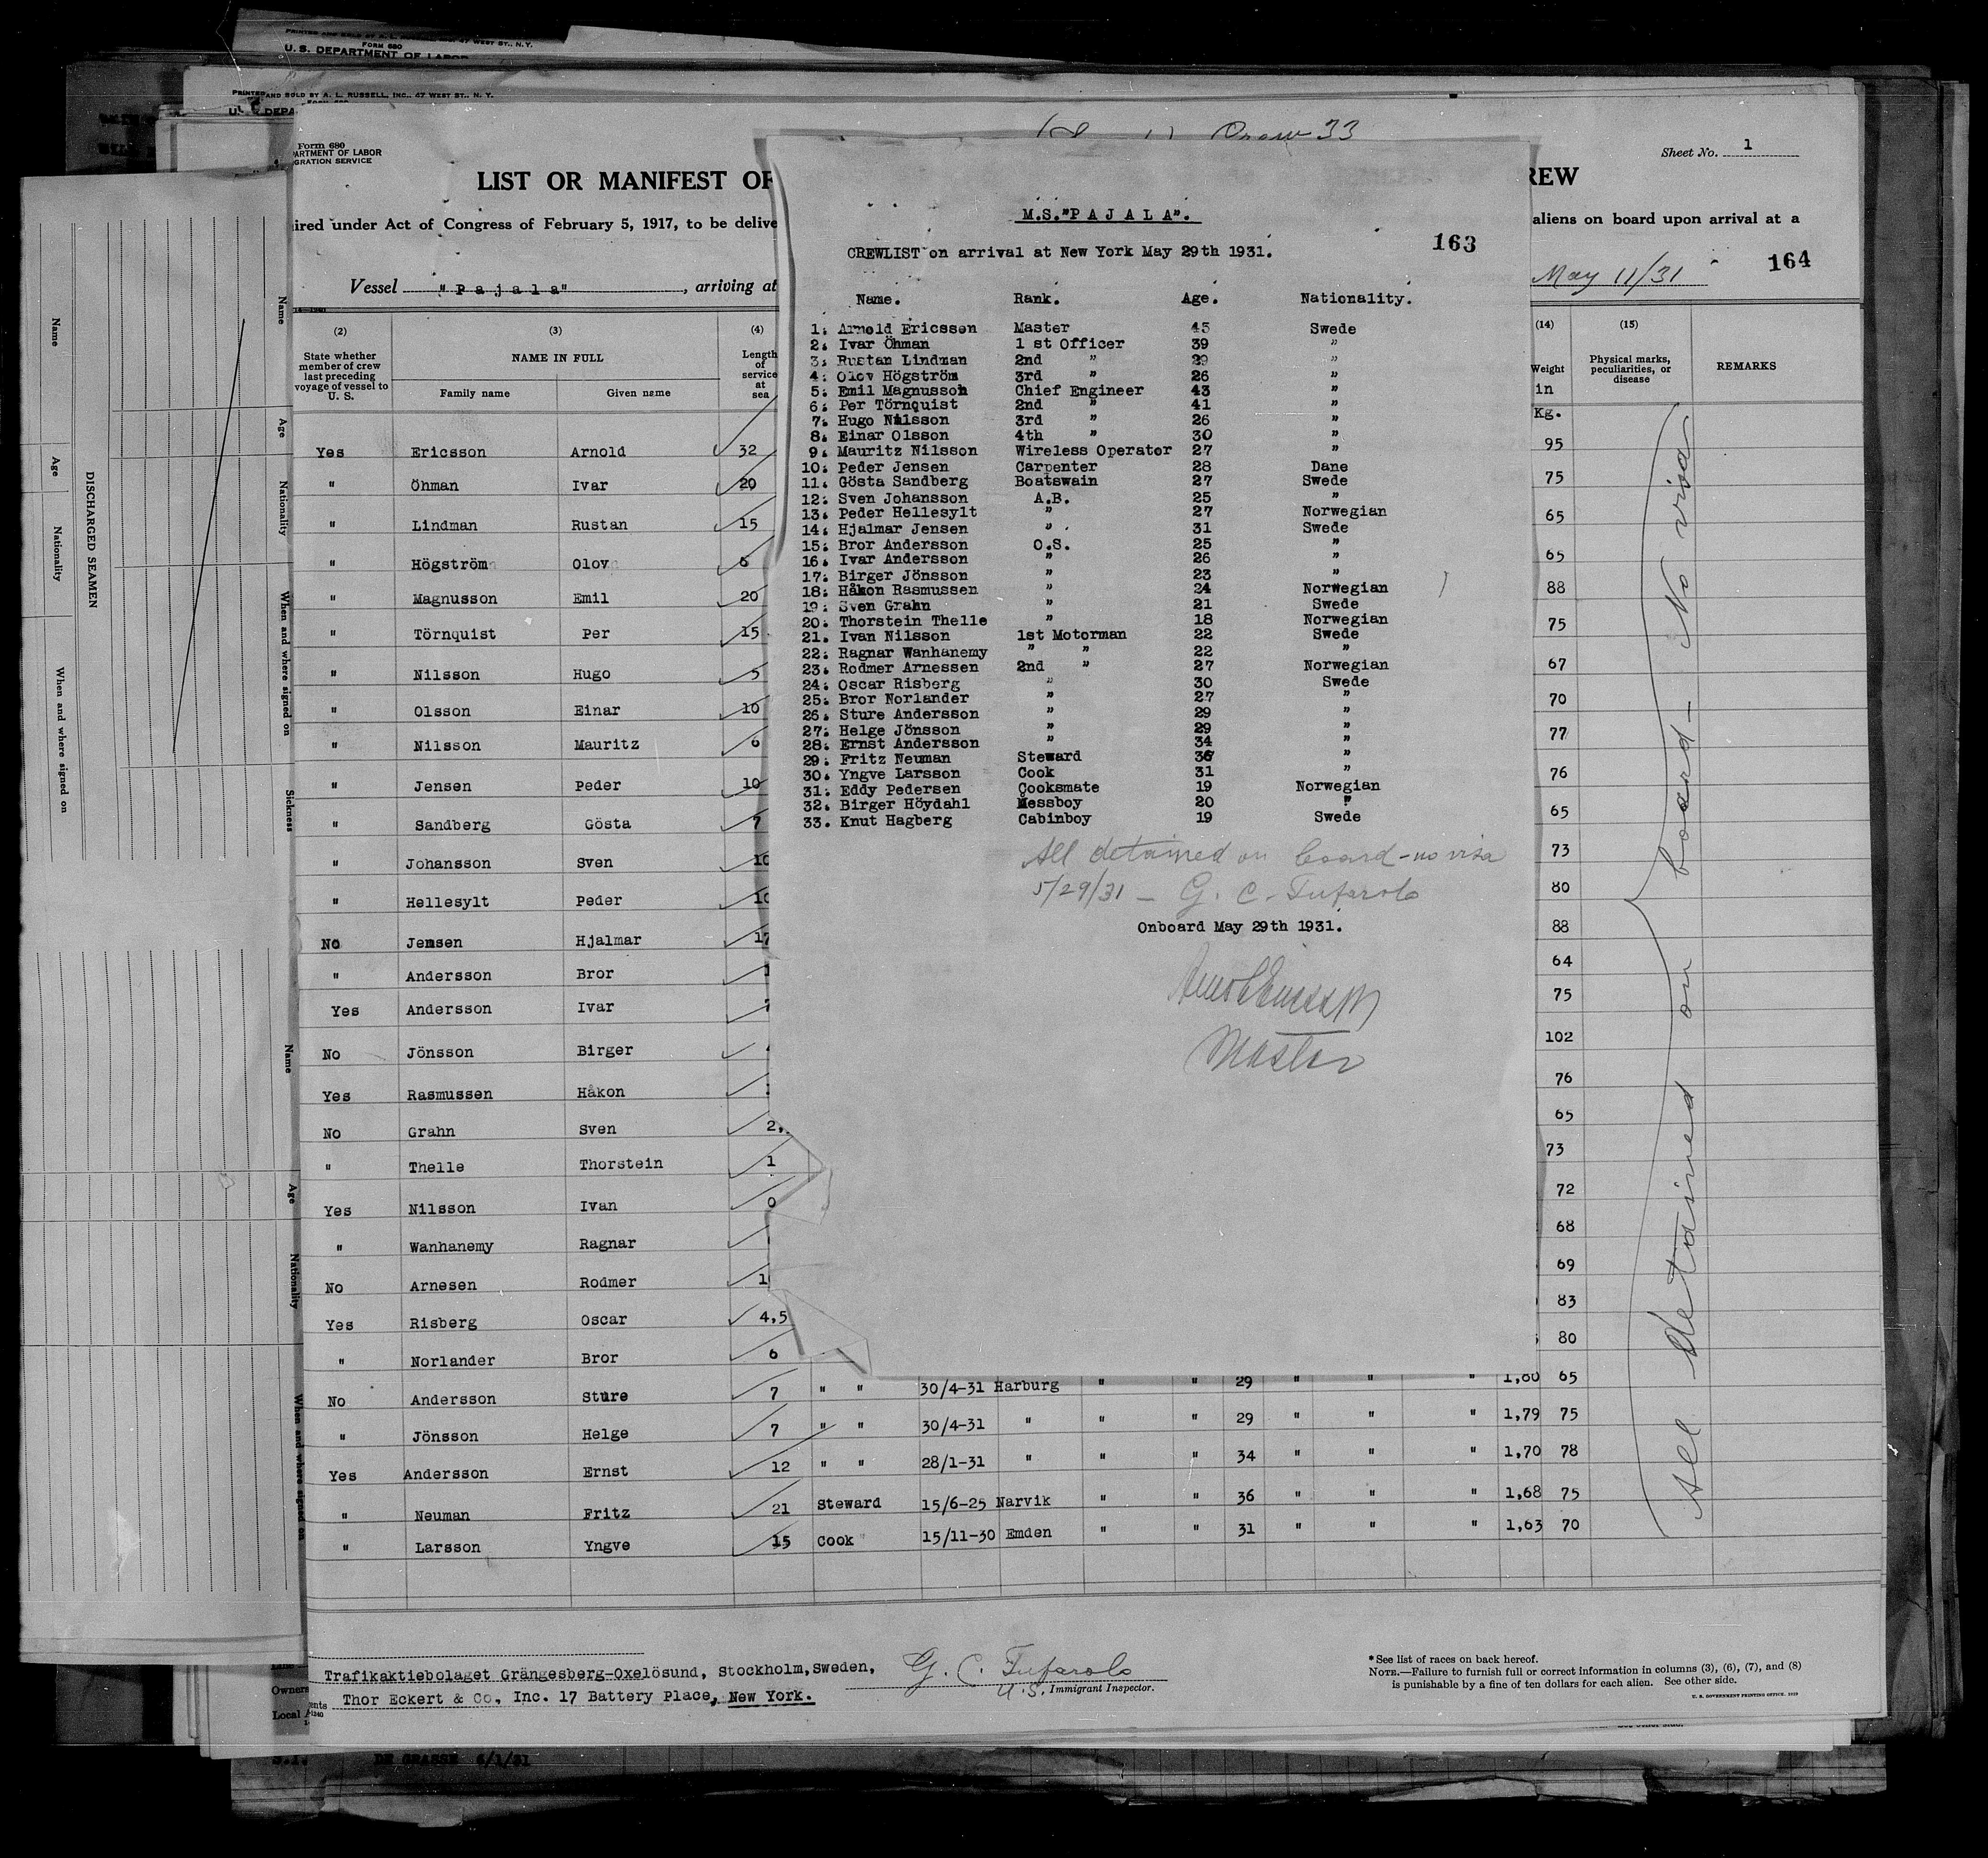 PRINTED AND SOLD BY A. L. RUSSELL, INC., 47 WEST ST., N. Y.
FORM 680
U. S. DEPARTMENT OF LABOR
PRINTED AND SOLD BY A. L. RUSSELL, INC., 47 WEST ST., N. Y.
Form 680
ARTMENT OF LABOR
GRATION SERVICE
Sheet No. 1
LIST OR MANIFEST OF
REW
ired under Act of Congress of February 5, 1917, to be delive
aliens on board upon arrival at a
Vessel "Pajala", arriving at
May 11/31
164
33
M.S."PAJALA".
163
CREWLIST on arrival at New York May 29th 1931.
Name. Rank. Age. Nationality.
1. Arnold Ericsson Master 45 Swede
2. Ivar Öhman 1 st Officer 39 "
3. Rustan Lindman 2nd " 29 "
4. Olov Högström 3rd " 26 "
5. Emil Magnusson Chief Engineer 43 "
6. Per Törnquist 2nd " 41 "
7. Hugo Nilsson 3rd " 26 "
8. Einar Olsson 4th " 30 "
9. Mauritz Nilsson Wireless Operator 27 "
10. Peder Jensen Carpenter 28 Dane
11. Gösta Sandberg Boatswain 27 Swede
12. Sven Johansson A.B. 25 "
13. Peder Hellesylt " 27 Norwegian
14. Hjalmar Jensen " 31 Swede
15. Bror Andersson O.S. 25 "
16. Ivar Andersson " 26 "
17. Birger Jönsson " 23 "
18. Håkon Rasmussen " 24 Norwegian
19. Sven Grahn " 21 Swede
20. Thorstein Thelle " 18 Norwegian
21. Ivan Nilsson 1st Motorman 22 Swede
22. Ragnar Wanhanemy " " 22 "
23. Rodmer Arnessen 2nd " 27 Norwegian
24. Oscar Risberg " 30 Swede
25. Bror Norlander " 27 "
26. Sture Andersson " 29 "
27. Helge Jönsson " 29 "
28. Ernst Andersson " 34 "
29. Fritz Neuman Steward 36 "
30. Yngve Larsson Cook 31 "
31. Eddy Pedersen Cooksmate 19 Norwegian
32. Birger Höydahl Messboy 20 "
33. Knut Hagberg Cabinboy 19 Swede
All detained on board - no visa
5/29/31 - G. C. Tufarolo
Onboard May 29th 1931.
Arnold Ericsson
Master
(2) (3) (4) (14) (15)
State whether member of crew last preceding voyage of vessel to U. S.
NAME IN FULL
Family name Given name
Length of service at sea
Weight in Kg.
Physical marks, peculiarities, or disease
REMARKS
Yes Ericsson Arnold 32 95
" Öhman Ivar 20 75
" Lindman Rustan 15 65
" Högström Olov 6 65
" Magnusson Emil 20 88
" Törnquist Per 15 75
" Nilsson Hugo 5 67
" Olsson Einar 10 70
" Nilsson Mauritz 6 77
" Jensen Peder 10 76
" Sandberg Gösta 7 65
" Johansson Sven 10 73
" Hellesylt Peder 10 80
No Jensen Hjalmar 17 88
" Andersson Bror 64
Yes Andersson Ivar 75
No Jönsson Birger 102
Yes Rasmussen Håkon 76
No Grahn Sven 2, 65
" Thelle Thorstein 1 73
Yes Nilsson Ivan 0 72
" Wanhanemy Ragnar 68
No Arnesen Rodmer 1 69
Yes Risberg Oscar 4,5 83
" Norlander Bror 6 80
No Andersson Sture 7 " " 30/4-31 Harburg " " 29 " " " 1,80 65
" Jönsson Helge 7 " " 30/4-31 " " " 29 " " " 1,79 75
Yes Andersson Ernst 12 " " 28/1-31 " " " 34 " " " 1,70 78
" Neuman Fritz 21 Steward 15/6-25 Narvik " " 36 " " " 1,68 75
" Larsson Yngve 15 Cook 15/11-30 Emden " " 31 " " " 1,63 70
All detained on board - No visa
Trafikaktiebolaget Grängesberg-Oxelösund, Stockholm, Sweden,
Thor Eckert & Co, Inc. 17 Battery Place, New York.
G. C. Tufarolo
U.S. Immigrant Inspector.
*See list of races on back hereof.
NOTE.—Failure to furnish full or correct information in columns (3), (6), (7), and (8)
is punishable by a fine of ten dollars for each alien. See other side.
U. S. GOVERNMENT PRINTING OFFICE. 1929
Owners
Local A
DE GRASSE 6/1/31
DISCHARGED SEAMEN
Name
Age
Nationality
When and where signed on
Name
Age
Nationality
When and where signed on
Sickness
Name
Age
Nationality
When and where signed on